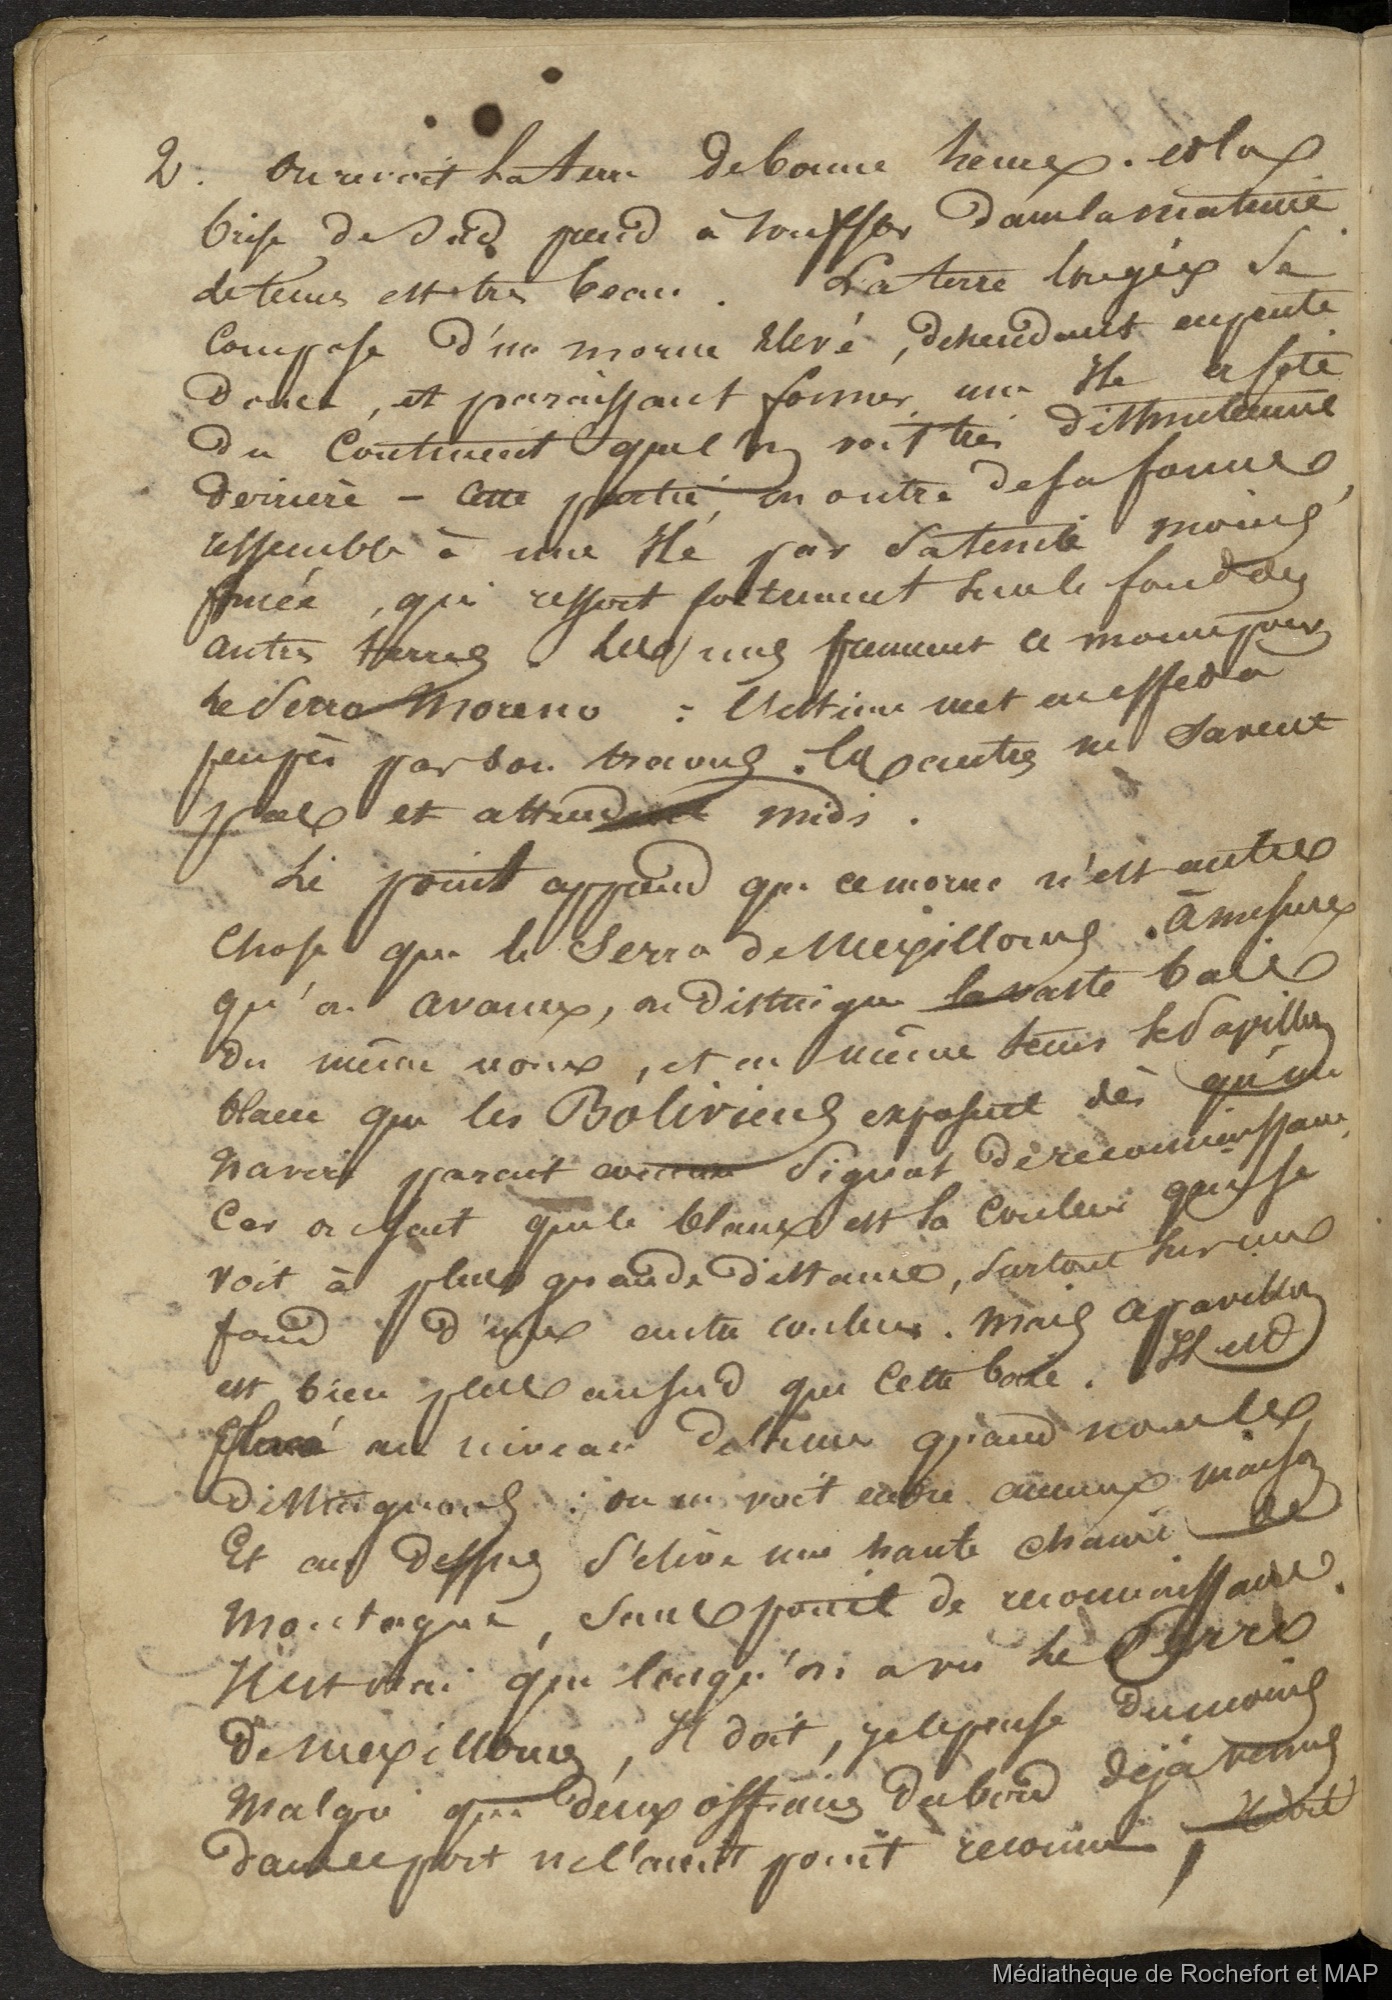 2. On revoit la terre de bonne heure. et la
brise de Sud prend à souffler dans la matinée
le tems est très beau. La terre longée se
compose d'un morne élevé, descendant en pente
douce, et paraissant former une île isolée
du Continent que l'on voit très distinctement
derrière - cette partie, en outre de sa forme,
ressemble à une île par sa teinte moins
foncée, qui ressort fortement sur le fond des
autres terres. Les uns prennent ce morne pour
le Serro Moreno : l'estime met en effet à
peu près par son travers. les autres ne savent
pas et attendent midi.
Le point apprend que ce morne n'est autre
chose que le Serro de Mexillons. à mesure
qu'on avance, on distingue la vaste baie
du même nom, et en même tems le Pavillon
blanc que les Boliviens exposent dès qu'un
navire parait comme signal de reconnaissance,
Car on sait que le blanc est la couleur qui se
voit à plus grande distance, surtout sur un
fond d'une autre couleur. Mais ce pavillon
est bien plus au sud que cette baie. Il est
placé au niveau de la mer quand nous le
distinguons : on ne voit encore aucune maison
Et au dessus s'élève une haute chaîne de
montagne, sans point de reconnaissance.
Il est vrai que lorsqu'on a vu le Cerro
de Mexillons, Il doit, je le pense du moins
Malgré que deux officiers du bord déjà venus
dans ce port ne l'aient point reconnu, Il doit
Médiathèque de Rochefort et MAP